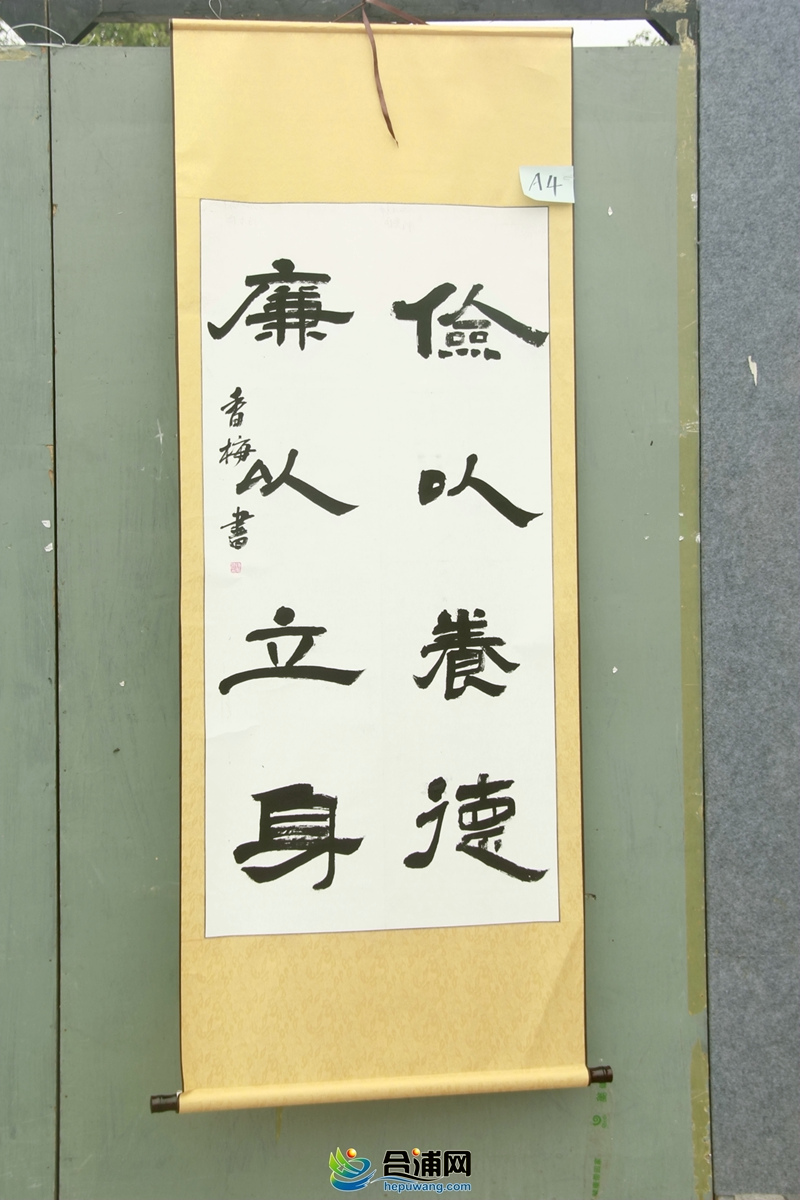 A4
儉以養德
廉以立身
香梅書
合浦网
hepuwang.com